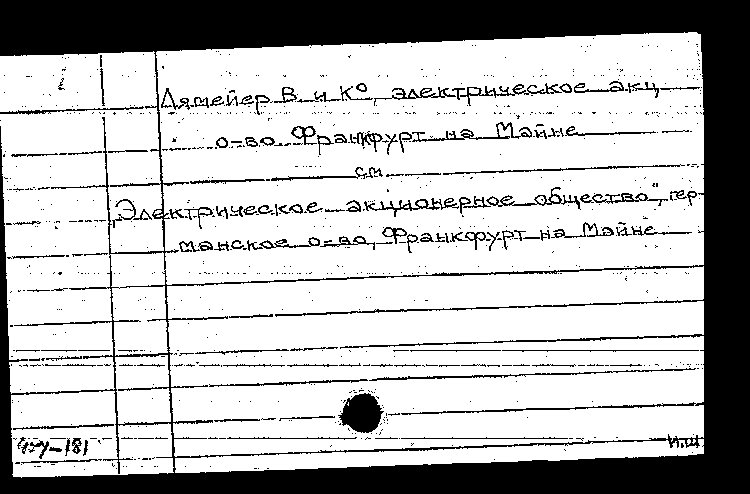 Лямейер В. и К⁰, электрическое акц.
о-во Франкфурт на Майне
см.
„Электрическое акционерное общество", гер-
манское о-во, Франкфурт на Майне
И.Ш